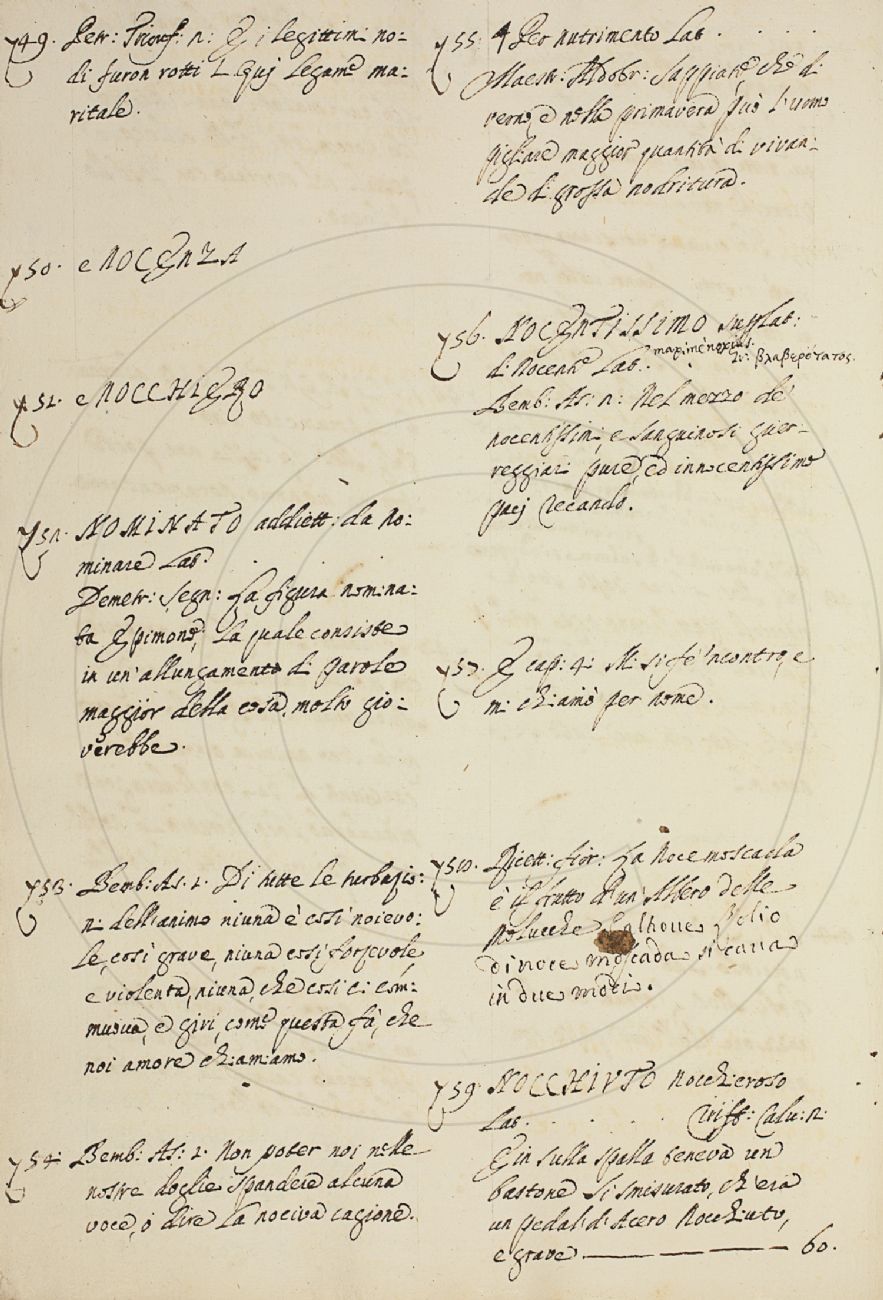 749. Petr: Trionf: 2: E i legittimi no-
di furon rotti
ritale.
750. e NOCENZA
751. e NOCCHIERO
752. NOMINATO addiett: da No:
minare Lat. . .
Demetr: Segn: La figura nomina:
ta Epimone, la quale consiste
in un' allungamento di parole
maggior della cosa, molto gio:
verebbe.
753. Bemb: As: 2. Di tutte le turbazio:
ni dell'animo niuna è così noievo:
le, così grave, niuna così forzevole,
e violenta, niuna, che così ci com:
muova, e giri, come questa fà, che
noi amore chiamiamo.
754. Bemb: As: 2. Non poter noi nelle
nostre doglie spandere alcuna
voce, ò dire la nociva cagione.
755. Per nutrimento Lat. . . . . .
Maestr: Aldobr: Sappiate, che di
verno, e nella primavera può l'uomo
pigliare maggior quantità di vivan:
de di grossa nodritura.
756. NOCENTISSIMO Superlat:
di Nocente Lat. . βλαβερότατος.
Bemb: As: 2: Nel mezzo de
nocentissimi, e sanguinosi guer-
reggiari pure, ed innocentissimo
recando.
757. E cap: 4: Mi si fè 'ncontro, e
mi chiamò per nome.
758. Ricett: Fior: La Noce moscada
è il frutto d'un' Albero delle
Molucche. Olio
di noce moscada si cava
in due modi.
759. NOCCHIUTO Nocchieroso
Lat. . . . . . Criff: Calu: 2:
E in sulla spalla teneva un
bastone sì smisurato, ch'era
un pedal' di Acero Nocchiuto,
e grave 60.